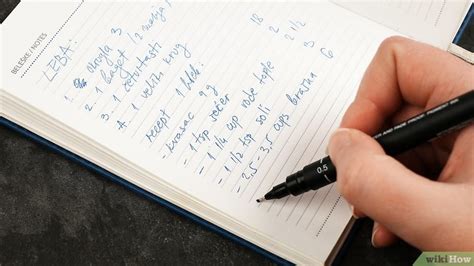 BELEŠKE / NOTES
LEBA:
3
2. 1 baget 1/2
3. 1 četvrtasti
4. 1 veliki krug
recept 1 hleb:
- kvasac 9g
- 1 tsp šećer
- 1 1/4 cup vode tople
- 1 1/2 tsp soli
- 2,5 - 3,5 cups brašna
18
2
3
6
0.5
wikiHow